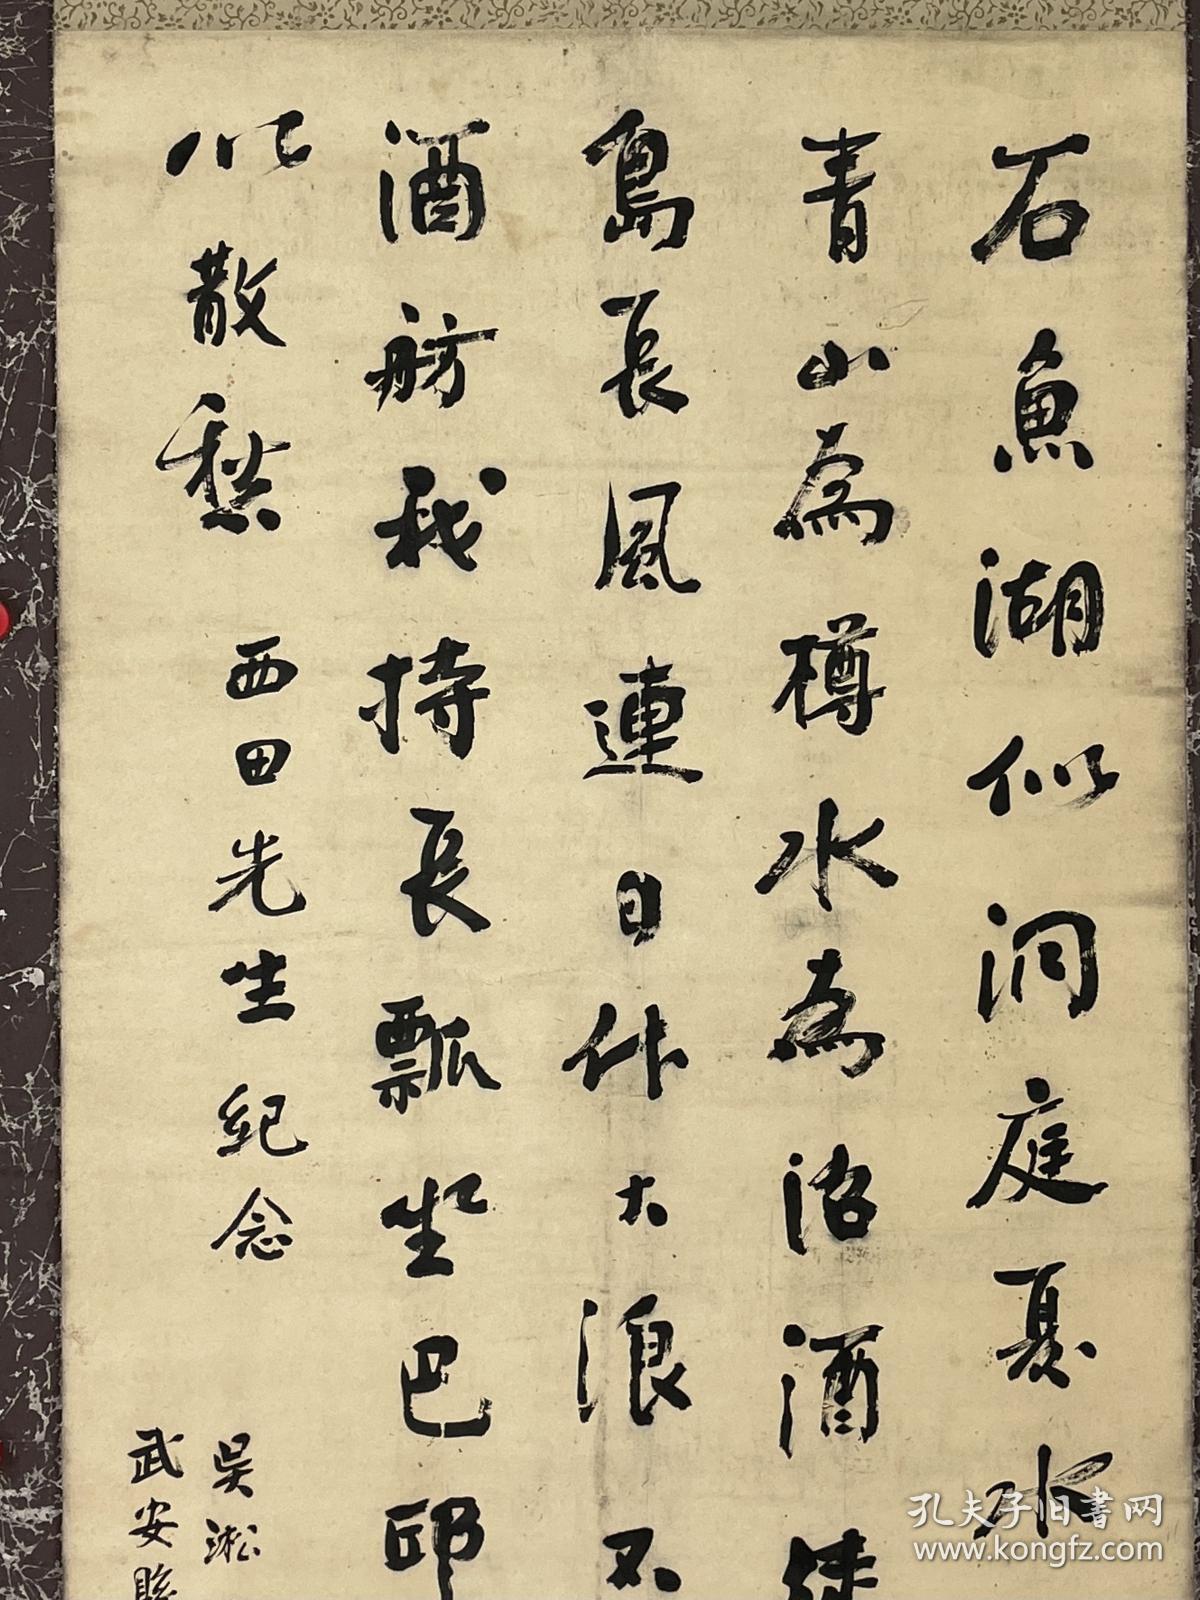 石魚湖似洞庭夏水
青山為樽水為沼酒徒
島長風連日作大浪不
酒舫我持長瓢坐巴邱
以散愁
西田先生紀念
吳淞
武安縣
孔夫子旧書网
www.kongfz.com